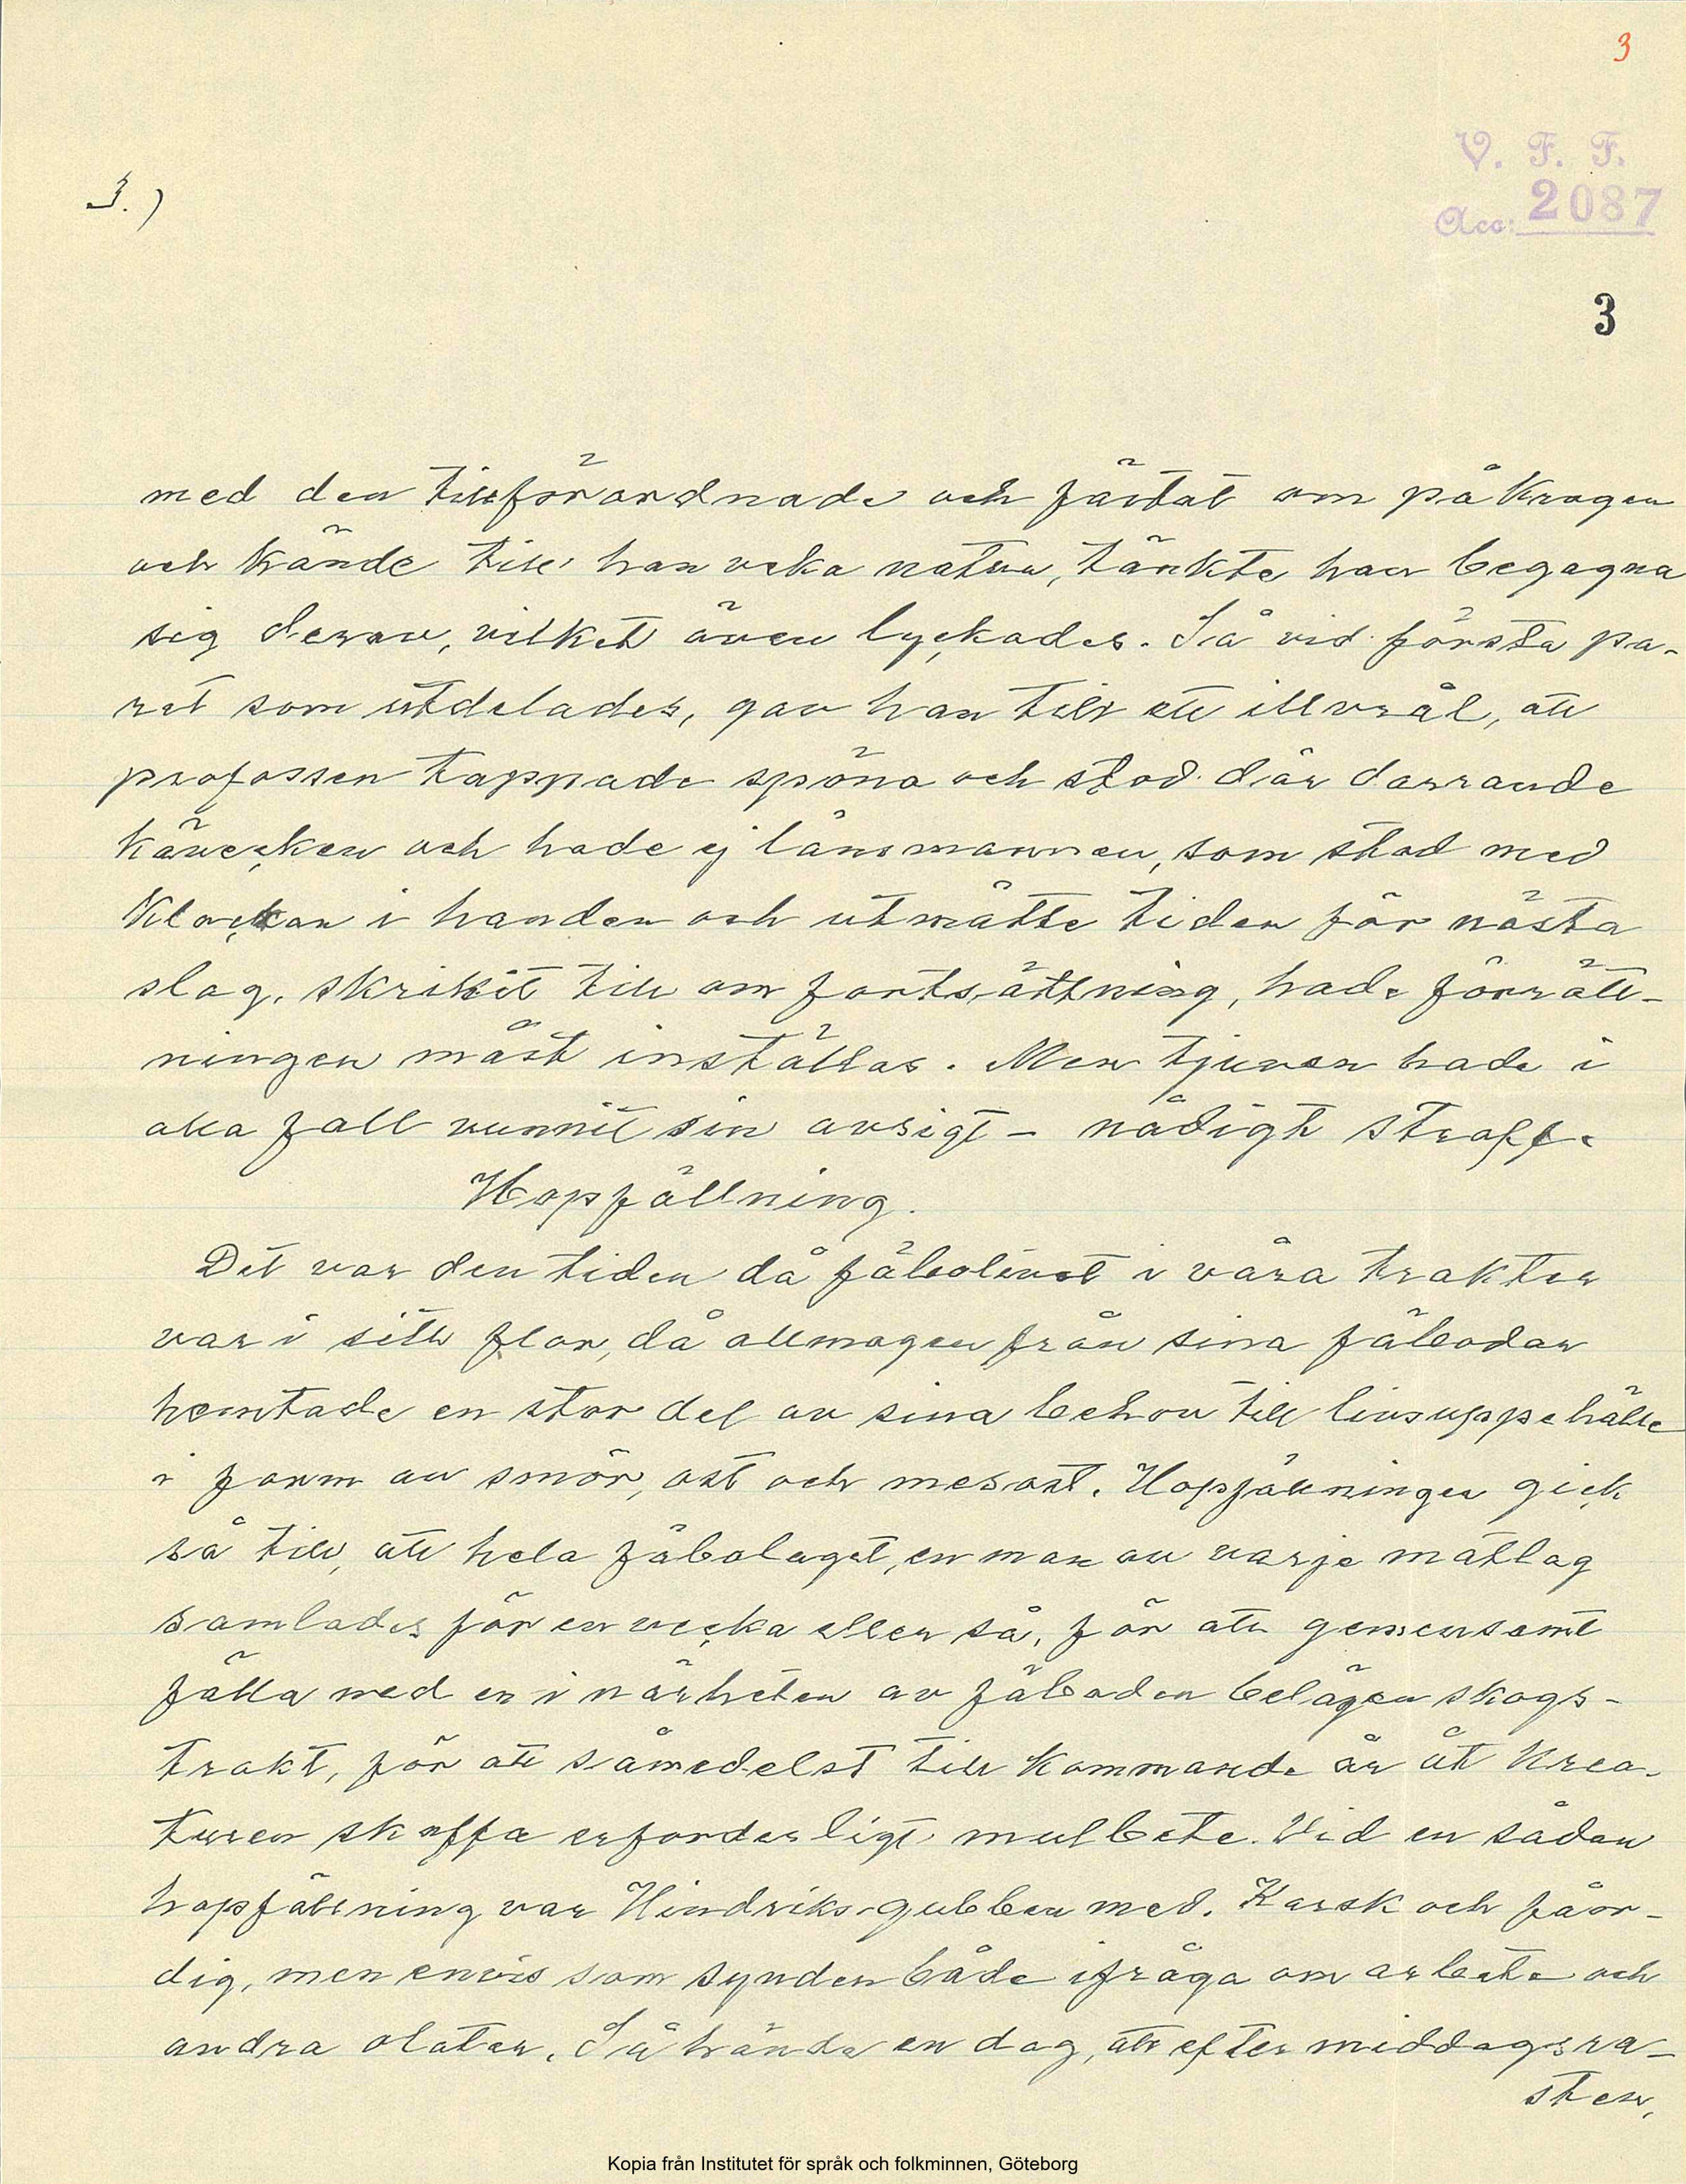 3
V. F. F.
3.)
Acc: 2087
3
med den tillförordnade och om på Kragen
och kände till han veka natur, tänkte han begagna
sig derav, vilket även lyckades. Så vid första pa-
ret som utdelades, gav han till ett illvrål, att
profossen tappade spöna och stod där darrande
käVecken och hade ej länsmannen, som stod med
Klockan i handen och utmätte tiden för nästa
slag, skrikit till om fortsättning, hade förrätt-
ningen måst inställas. Men tjuven hade i
alla fall vunnit sin avsigt - nådigt straff.
Hopfällning.
Det var den tiden då fäbolivet i våra trakter
var i sitt flor, då allmogen från sina fäbodar
hemtade en stor del av sina behov till livsuppehälle
i form av smör, ost och mesost. Hopfällningen gick
så till, att hela fäbolaget, en man av varje matlag
samlades för en vecka eller så, för att gemensamt
fälla ned en i närheten av fäboden belägen skogs-
trakt, för att såmedelst till kommande år åt Krea-
turen skaffa erforderligt mulbete. Vid en sådan
hopfällning var Hindriks-gubben med. Karsk och fåor-
dig, men envis som synden både ifråga om arbete och
andra olater. Så hände en dag, att efter middagsra-
sten,
Kopia från Institutet för språk och folkminnen, Göteborg